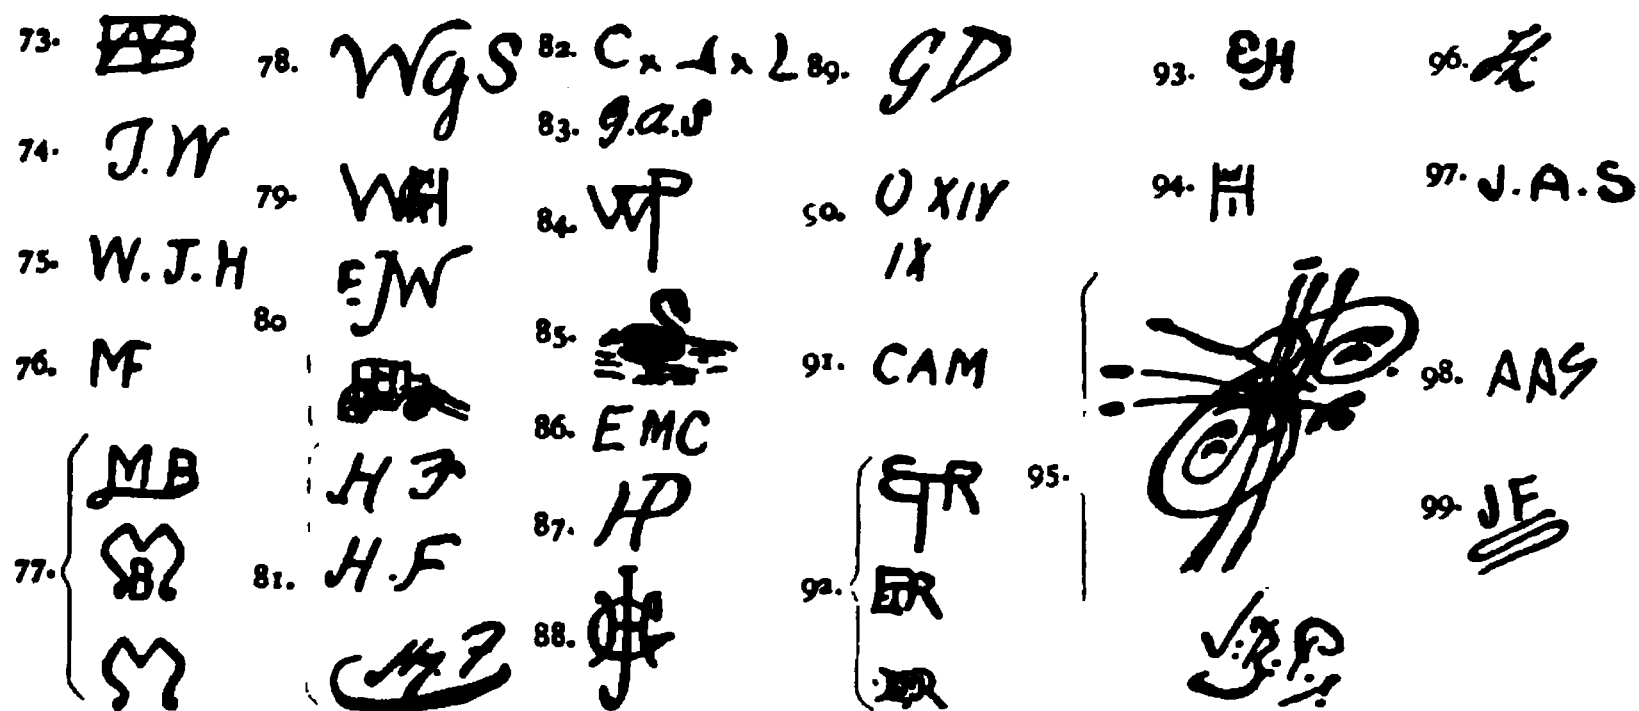 73.
74. J. W
75. W. J. H
76. MF
77. M B
B
M
78. W g S
79. WH
80 E J W
81. H F
H. F
H. F
82. C x x L
83. g. a. s
84. WP
85.
86. E M C
87. HP
88.
89. G D
90. O XIV
IX
91. C A M
92. ETR
ETR
93. EH
94. EH
95.
V. R. P.
96.
97. J. A. S
98. A A S
99. J F